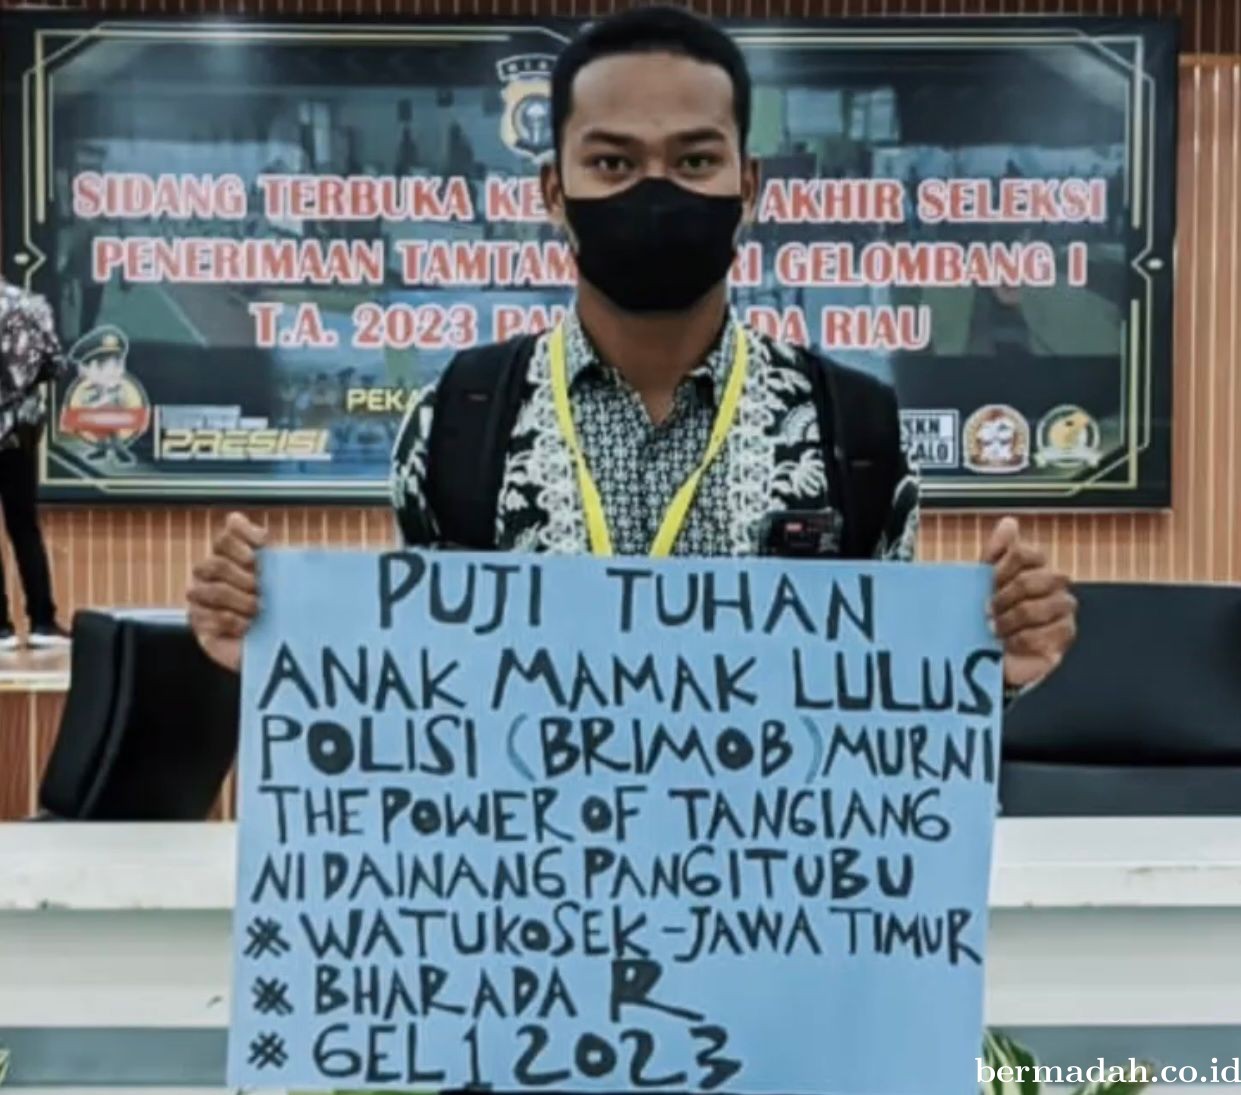 RIAU
SIDANG TERBUKA KE AKHIR SELEKSI
PENERIMAAN TAMTAM RI GELOMBANG I
T.A. 2023 PA DA RIAU
PEKA
PRESISI
PUJI TUHAN
ANAK MAMAK LULUS
POLISI (BRIMOB) MURNI
THE POWER OF TANGIANG
NI DAINANG PANGITUBU
* WATUKOSEK - JAWA TIMUR
* BHARADA R
* GEL 1 2023
bermadah.co.id